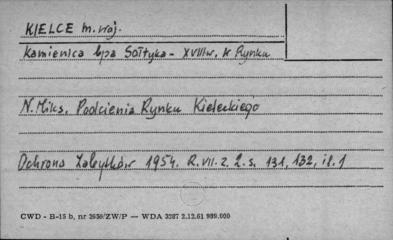 KIELCE m. woj.
Kamienica bpa Sołtyka - XVIIIw. w Rynku
N. Miks, Podcienia Rynku Kieleckiego
Ochrona Zabytków 1954. R. VII. z. 2. s. 131, 132, il. 1
CWD - B-15 b, nr 3650/ZW/P — WDA 3287 2.12.61 999.000